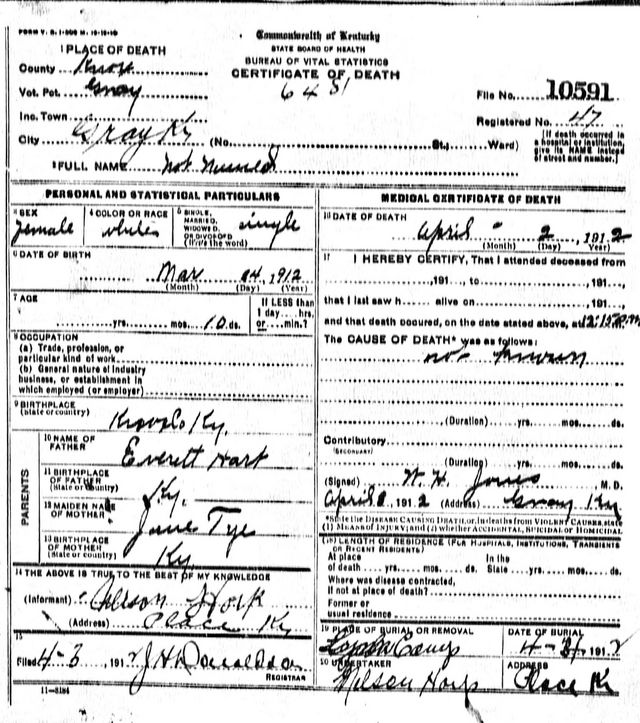 FORM V. S. 1-500 M. 10-18-10
Commonwealth of Kentucky
STATE BOARD OF HEALTH
BUREAU OF VITAL STATISTICS
CERTIFICATE OF DEATH
1 PLACE OF DEATH
County Knox
Vot. Pct. Gray
Inc. Town
City Gray Ky (No. St.; Ward)
File No. 10591
Registered No. 47
(If death occurred in a hospital or institution, give its NAME instead of street and number.)
2 FULL NAME not Named
PERSONAL AND STATISTICAL PARTICULARS
3 SEX female
4 COLOR OR RACE white
5 SINGLE, MARRIED, WIDOWED, OR DIVORCED (Write the word) single
6 DATE OF BIRTH
Mar 24, 1912
(Month) (Day) (Year)
7 AGE
yrs. mos. 10 ds.
If LESS than 1 day hrs. or min.?
8 OCCUPATION
(a) Trade, profession, or particular kind of work
(b) General nature of industry business, or establishment in which employed (or employer)
9 BIRTHPLACE
(State or country) Knox Co Ky.
PARENTS
10 NAME OF FATHER Everett Hart
11 BIRTHPLACE OF FATHER (State or country) Ky.
12 MAIDEN NAME OF MOTHER Jane Tye
13 BIRTHPLACE OF MOTHER (State or country) Ky
14 THE ABOVE IS TRUE TO THE BEST OF MY KNOWLEDGE
(Informant)
(Address) Place Ky
15
Filed 4-3, 1912 J H Donaldson
REGISTRAR
11-3184
MEDICAL CERTIFICATE OF DEATH
16 DATE OF DEATH
April 2, 1912
(Month) (Day) (Year)
17 I HEREBY CERTIFY, That I attended deceased from
, 191 , to , 191 ,
that I last saw h alive on , 191 ,
and that death occured, on the date stated above, at 12:15 P.m.
The CAUSE OF DEATH* was as follows:
not known
(Duration) yrs. mos. ds.
Contributory
(SECONDARY)
(Duration) yrs. mos. ds.
(Signed) W. H. Jones M. D.
April 8, 1912 (Address) Gray Ky
*State the DISEASE CAUSING DEATH, or, in deaths from VIOLENT CAUSES, state (1) MEANS OF INJURY; and (2) whether ACCIDENTAL, SUICIDAL or HOMICIDAL
(18) LENGTH OF RESIDENCE (FOR HOSPITALS, INSTITUTIONS, TRANSIENTS OR RECENT RESIDENTS)
At place of death yrs. mos. ds. In the State yrs. mos. ds.
Where was disease contracted, If not at place of death?
Former or usual residence
19 PLACE OF BURIAL OR REMOVAL
DATE OF BURIAL
4-3, 1912
20 UNDERTAKER
ADDRESS
Place Ky